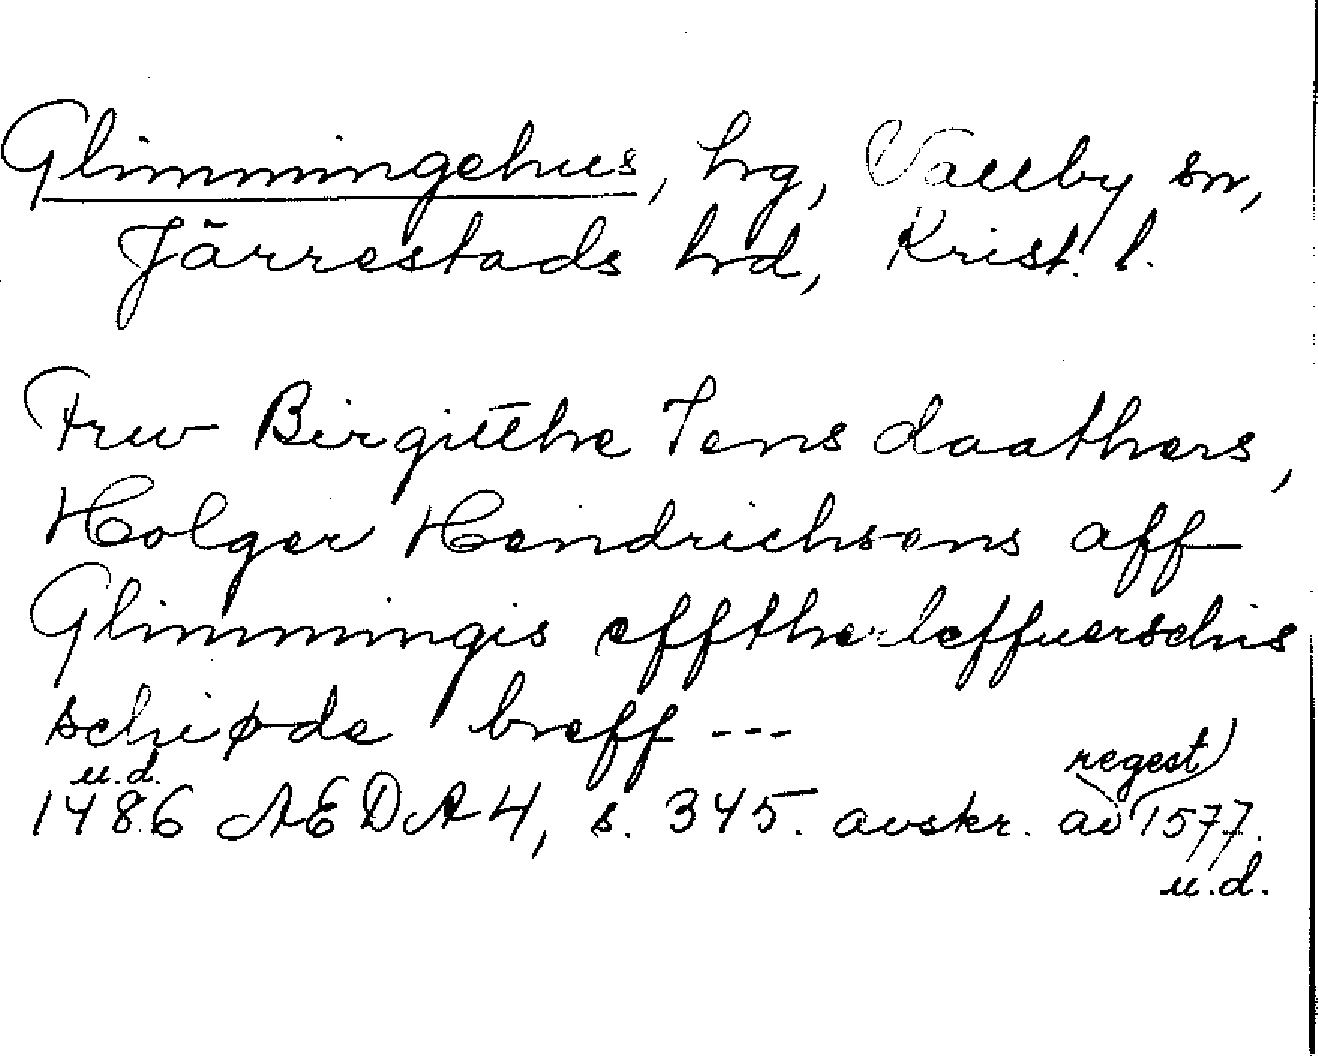 Glimmingehus, hrg, Vallby sn,
Järrestads hrd, Krist. l.
Frw Birgitthe Jens daathers,
Holger Hendrichsens aff
Glimmingis efftherleffuerschis
schiøde breff ---
u.d.
regest
1486 AEDA 4, s. 345. avskr. av 1577.
u.d.